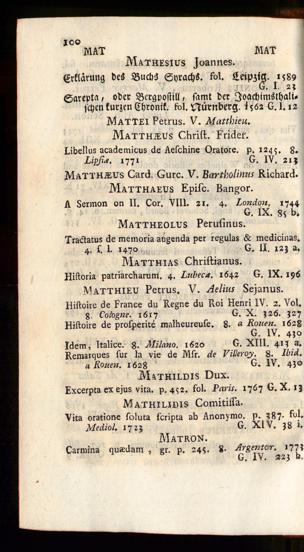 100
MAT MAT
MATHESIUS Joannes.
Erklärung des Buchs Syrachs. fol. Leipzig. 1589
G. I. 23
Sarepta, oder Bergpostill, samt der Joachimsthali-
schen kurzen Chronik. fol. Nürnberg. 1562 G. I. 12
MATTEI Petrus. V. Matthieu.
MATTHÆUS Christ. Frider.
Libellus academicus de Aeschine Oratore. p. 1245. 8.
Lipsiæ. 1771 G. IV. 213
MATTHÆUS Card. Gurc. V. Bartholinus Richard.
MATTHAEUS Episc. Bangor.
A Sermon on II. Cor. VIII. 21. 4. London, 1744
G. IX. 85 b.
MATTHEOLUS Perusinus.
Tractatus de memoria augenda per regulas & medicinas.
4. s. l. 1470 G. II. 123 a.
MATTHIAS Christianus.
Historia patriarcharum. 4. Lubecæ. 1642 G. IX. 196
MATTHIEU Petrus. V. Aelius Sejanus.
Histoire de France du Regne du Roi Henri IV. 2. Vol.
8. Cologne. 1617 G. X. 326. 327
Histoire de prosperité malheureuse. 8. a Rouen. 1628
G. IV. 430
Idem, Italice. 8. Milano. 1620 G. XIII. 413 a.
Remarques sur la vie de Msr. de Villeroy. 8. Ibid.
a Rouen. 1628 G. IV. 430
MATHILDIS Dux.
Excerpta ex ejus vita. p. 452. fol. Paris. 1767 G. X. 13
MATHILIDIS Comitissa.
Vita oratione soluta scripta ab Anonymo. p. 387. fol.
Mediol. 1723 G. XIV. 38 i.
MATRON.
Carmina quædam, gr. p. 245. 8. Argentor. 1773
G. IV. 223 b.